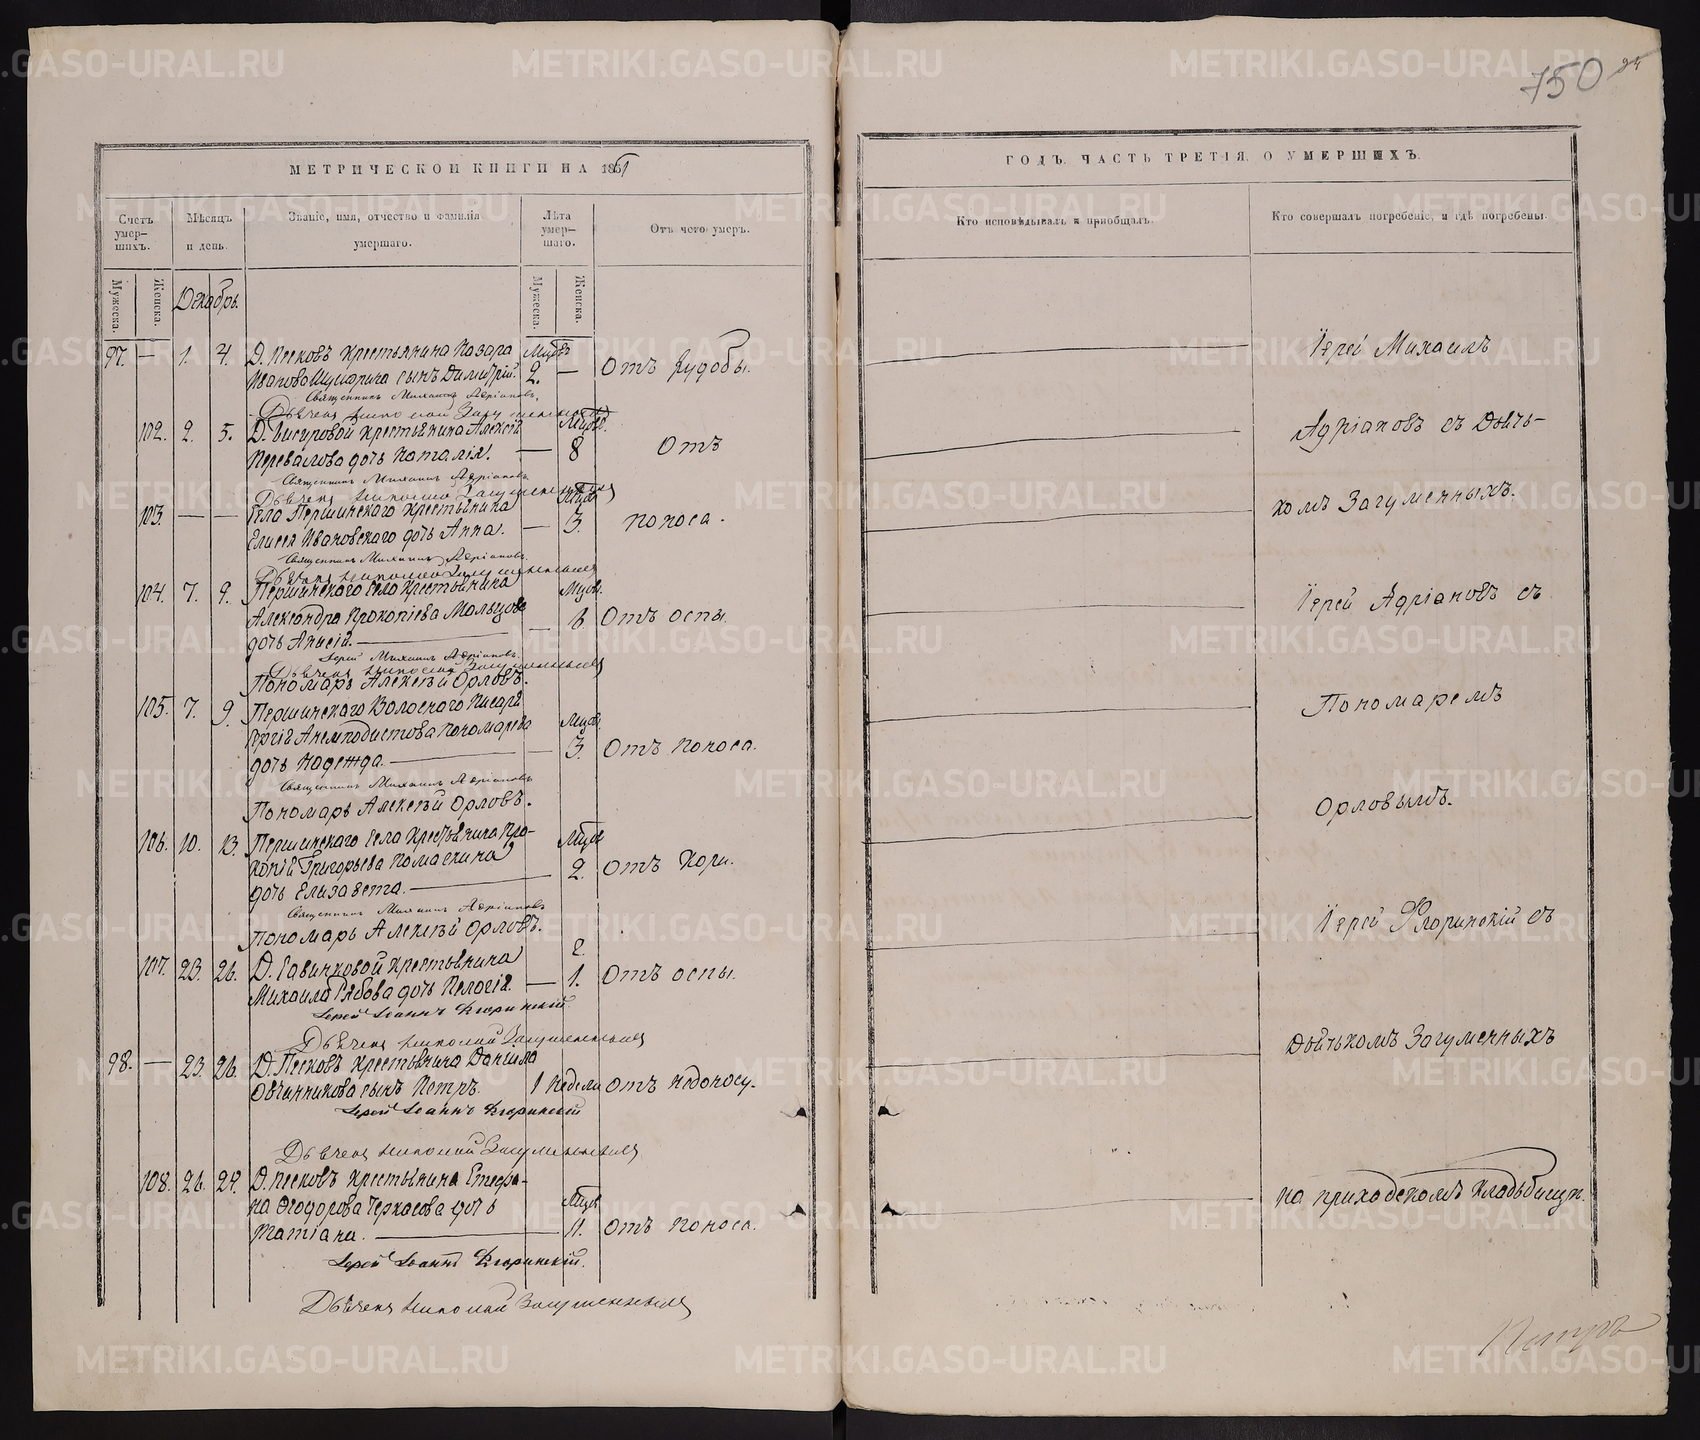 750
МЕТРИЧЕСКОЙ КНИГИ НА 1861
Счетъ умер-шихъ.
Мѣсяцъ и день.
Званіе, имя, отчество и фамилія умершаго.
Лѣта умер-шаго.
Отъ чего умеръ.
Мужеска.
Женска.
Декабрь.
Мужеска.
Женска.
97. — 1. 4. Д. Песковъ крестьянина Назара Мцвъ
Иванова сынъ Димитрій. 2. — Отъ худобы.
Священникъ Михаилъ Адріановъ.
Дьячекъ Николай Загуменныхъ
102. 2. 5. Д. крестьянина Алексія Мцвъ.
Перевалова дочь Наталія. — 8 Отъ
Священникъ Михаилъ Адріановъ
Дьячекъ Николай Загуменныхъ
103. — — Села Першинскаго крестьянина Мцвъ
Елисея Ивановскаго дочь Анна. — 3. поноса.
Священникъ Михаилъ Адріановъ
Дьячекъ Николай Загуменныхъ
104. 7. 9. Першинскаго села крестьянина Мцвъ.
Александра Прокопіева Мальцова
дочь Анисія. — 6. Отъ оспы.
Іерей Михаилъ Адріановъ
Дьячекъ Николай Загуменныхъ
Пономарь Алексѣй Орловъ.
105. 7. 9. Першинскаго Волоснаго Писаря
Сергія Анемподистова Пономарева Мцвъ
дочь Надежда. — 3. Отъ поноса.
Священникъ Михаилъ Адріановъ
Пономарь Алексѣй Орловъ.
106. 10. 13. Першинскаго села крестьянина Про- Мцвъ
копія Григорьева Помаскина
дочь Елизавета. — 2. Отъ кори.
Священникъ Михаилъ Адріановъ
Пономарь Алексѣй Орловъ.
107. 23. 26. Д. Савинковой крестьянина г.
Михаила Рябова дочь Пелагія. — 1. Отъ оспы.
Іерей Іоаннъ Флоринскій
Дьячекъ Николай Загуменныхъ
98. — 23. 26. Д. Песковъ крестьянина Данила
Овчинникова сынъ Петръ. 1 недели отъ недоносу.
Іерей Іоаннъ Флоринскій
Дьячекъ Николай Загуменныхъ
108. 26. 29. Д. Песковъ крестьянина Стефа-
на Ѳеодорова Черкасова дочь Мцвъ
Татіана. — 11. Отъ поноса.
Іерей Іоаннъ Флоринскій.
Дьячекъ Николай Загуменныхъ
ГОДЪ, ЧАСТЬ ТРЕТІЯ, О УМЕРШИХЪ.
Кто исповѣдывалъ и пріобщалъ.
Кто совершалъ погребеніе, и гдѣ погребены.
Іерей Михаилъ
Адріановъ съ Дьяч-
комъ Загуменныхъ.
Іерей Адріановъ съ
Пономаремъ
Орловымъ.
Іерей Флоринскій съ
Дьячкомъ Загуменныхъ
на приходскомъ кладьбищѣ.
Петръ
METRIKI.GASO-URAL.RU